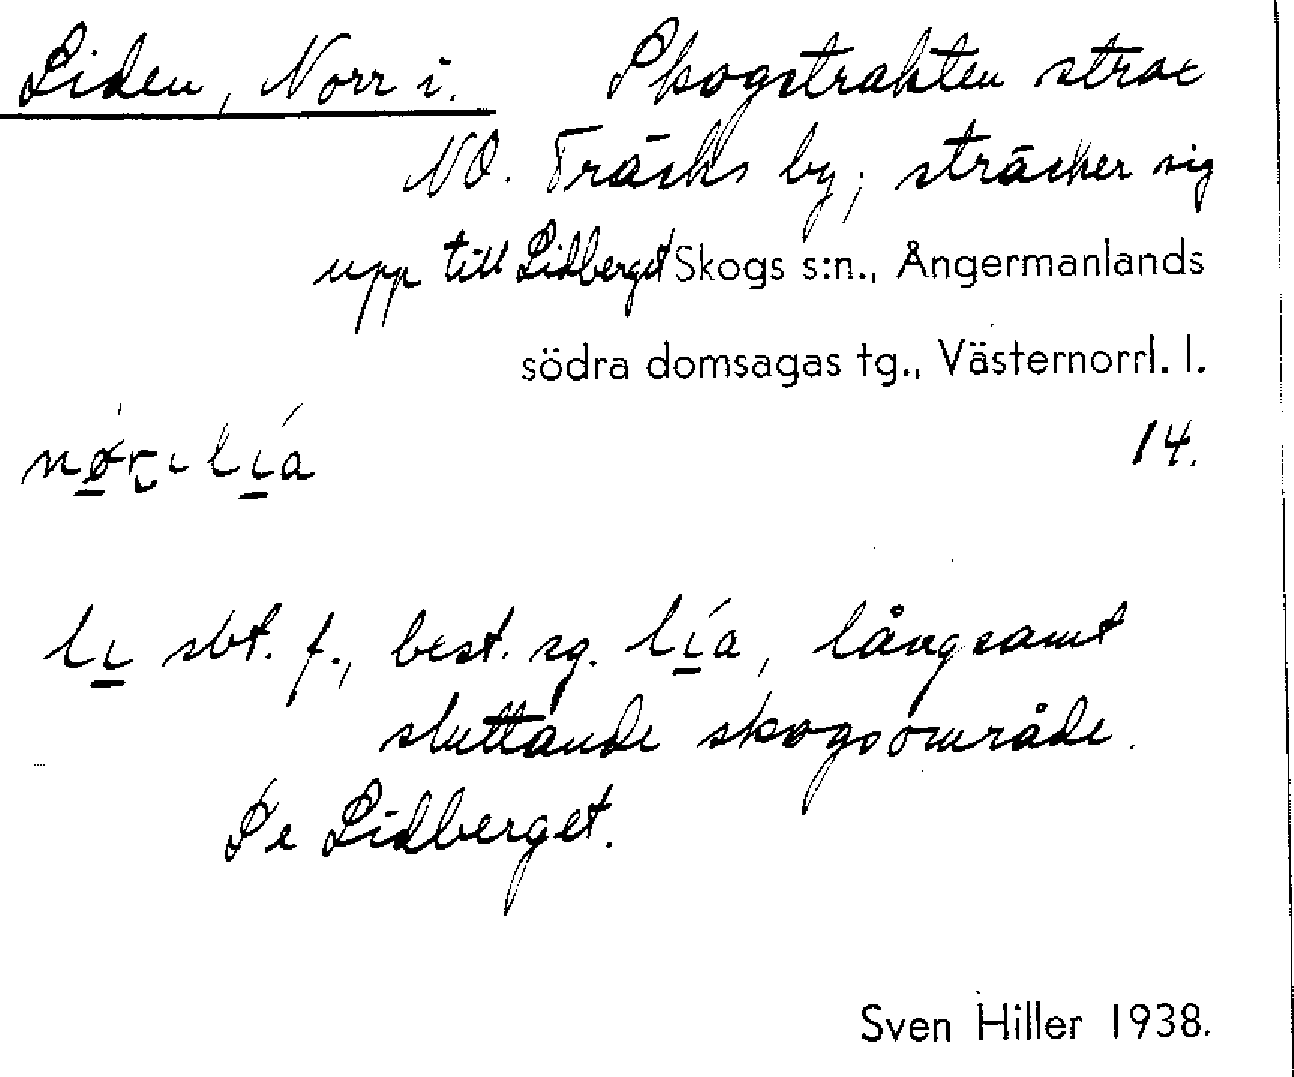 Liden, Norr i. Skogstrakten strax
NO. Träsks by; sträcker sig
upp till Lidberget Skogs s:n., Ångermanlands
södra domsagas tg., Västernorrl. l.
14.
lı sbt. f., best. sg. lı́a, långsamt
sluttande skogsområde.
Se Lidberget.
Sven Hiller 1938.